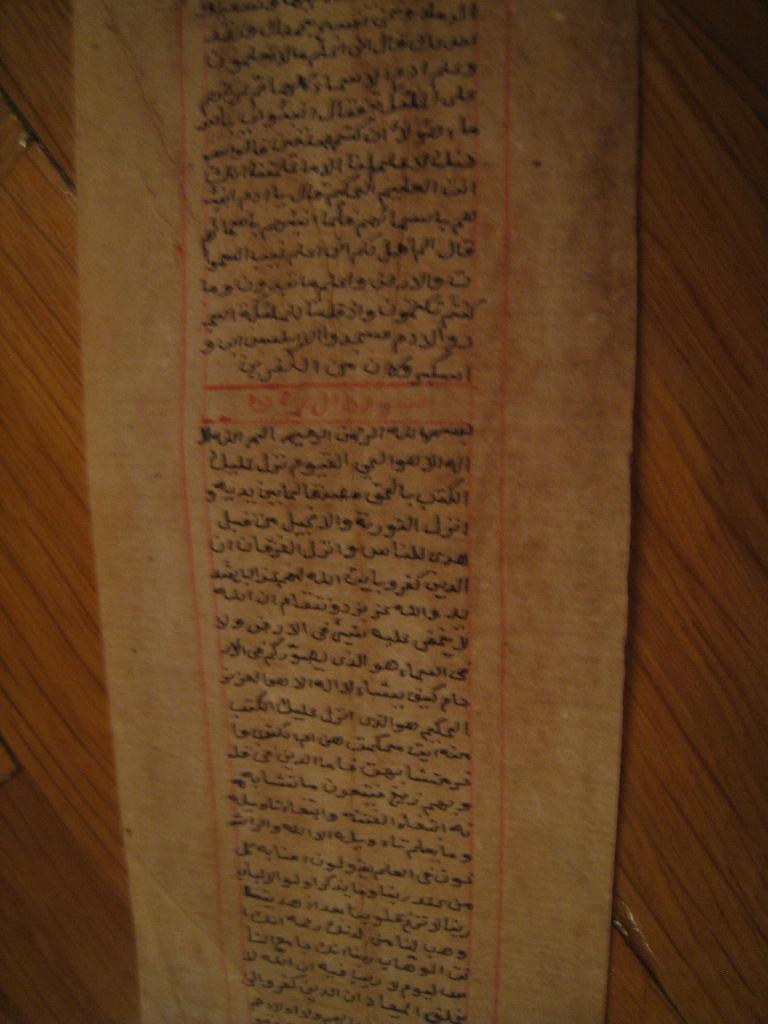 بعدك قال انى اعلم مالا تعلمون
وعلم ادم الاسماء كلها ثم عرضهم
على الملئكة فقال انبئونى باسـ
ماء هؤلاء ان كنتم صدقين قالوا سبـ
حنك لا علم لنا الا ما علمتنا انك
انت العليم الحكيم قال يا ادم انبئـ
هم باسمائهم فلما انبئهم باسمائهم
قال الم اقل لكم انى اعلم غيب السموا
ت والارض واعلم ما تبدون وما
كنتم تكتمون واذ قلنا للملئكة اسجـ
دوا لادم فسجدوا الا ابليس ابى و
استكبر وكان من الكفرين
سورة ال
بسم الله الرحمن الرحيم الم الله لا
اله الا هو الحي القيوم نزل عليك
الكتب بالحق مصدقا لما بين يديه و
انزل التورية والانجيل من قبل
هدى للناس وانزل الفرقان ان
الذين كفروا بايت الله لهم عذاب شد
يد والله عزيز ذو نتقام ان الله
لا يخفى عليه شيئ فى الارض ولا
فى السماء هو الذى يصوركم فى الار
حام كيف يشاء لا اله الا هو العزيز
الحكيم هو الذى انزل عليك الكتب
منه ايت محكمت هن ام الكتب وا
خر متشابهت فاما الذين فى قلـ
وبهم زيغ فيتبعون ما تشابه
نه ابتغاء الفتنة وابتغاء تاويله
وما يعلم تاويله الا الله والراسـ
خون فى العلم يقولون امنا به كل
من عند ربنا وما يذكر الا اولو الالباب
ربنا لا تزغ قلوبنا بعد اذ هديتنا
وهب لنا من لدنك رحمة انك ا
نت الوهاب ربنا انك جامع النا
س ليوم لا ريب فيه ان الله لا
يخلف الميعاد ان الذين كفروا لن